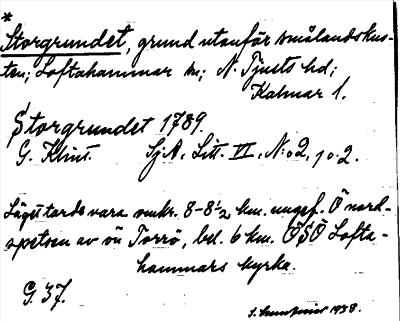 *
Storgrundet, grund utanför smålandskus-
ten; Loftahammar sn; N. Tjusts hd;
Kalmar l.
Storgrundet 1789.
G. Klint. SjA, Litt. VI, N:o 2, 1 o. 2.
Läget torde vara omkr. 8-8½ km. ungef. Ö nord-
spetsen av ön Torrö, bel. 6 km. ÖSÖ Lofta-
hammars kyrka.
G. 37.
1938.